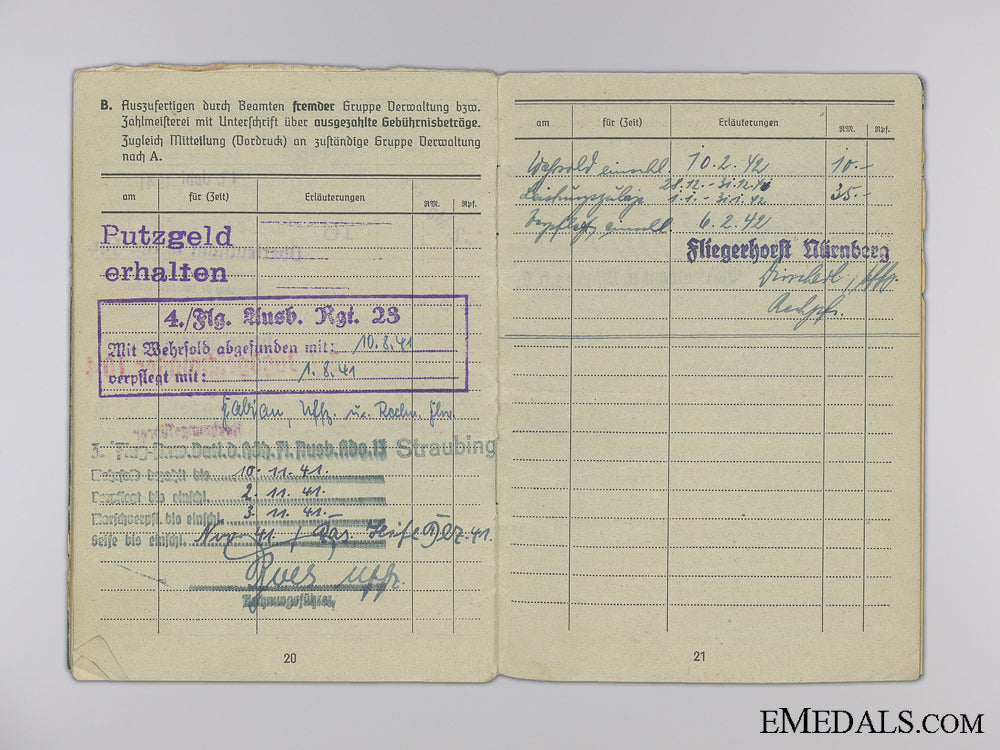 B. Auszufertigen durch Beamten fremder Gruppe Verwaltung bzw.
Zahlmeisterei mit Unterschrift über ausgezahlte Gebührnisbeträge.
Zugleich Mitteilung (Vordruck) an zuständige Gruppe Verwaltung
nach A.
am für (Zeit) Erläuterungen RM. Rpf.
Putzgeld
erhalten
4./Flg. Ausb. Rgt. 23
Mit Wehrsold abgefunden mit: 10.8.41
verpflegt mit: 1.8.41
Fabian, Uffz. u. Rechn. Fhr.
3. Ausb. Abt. 13 Straubing
Wehrsold bezahlt bis 10.11.41.
Verpflegt bis einschl. 2.11.41.
Marschverpfl. bis einschl. 3.11.41.-
Seife bis einschl. Nov. 41 / Dez. 41.
Uffz.
Rechnungsführer
20
am für (Zeit) Erläuterungen RM. Rpf.
Wehrsold einschl. 10.2.42 10.-
21.12.-31.12.41
Leistungszulage 1.1.-31.1.42 35.-
Verpflegt einschl. 6.2.42
Fliegerhorst Nürnberg
21
EMEDALS.COM